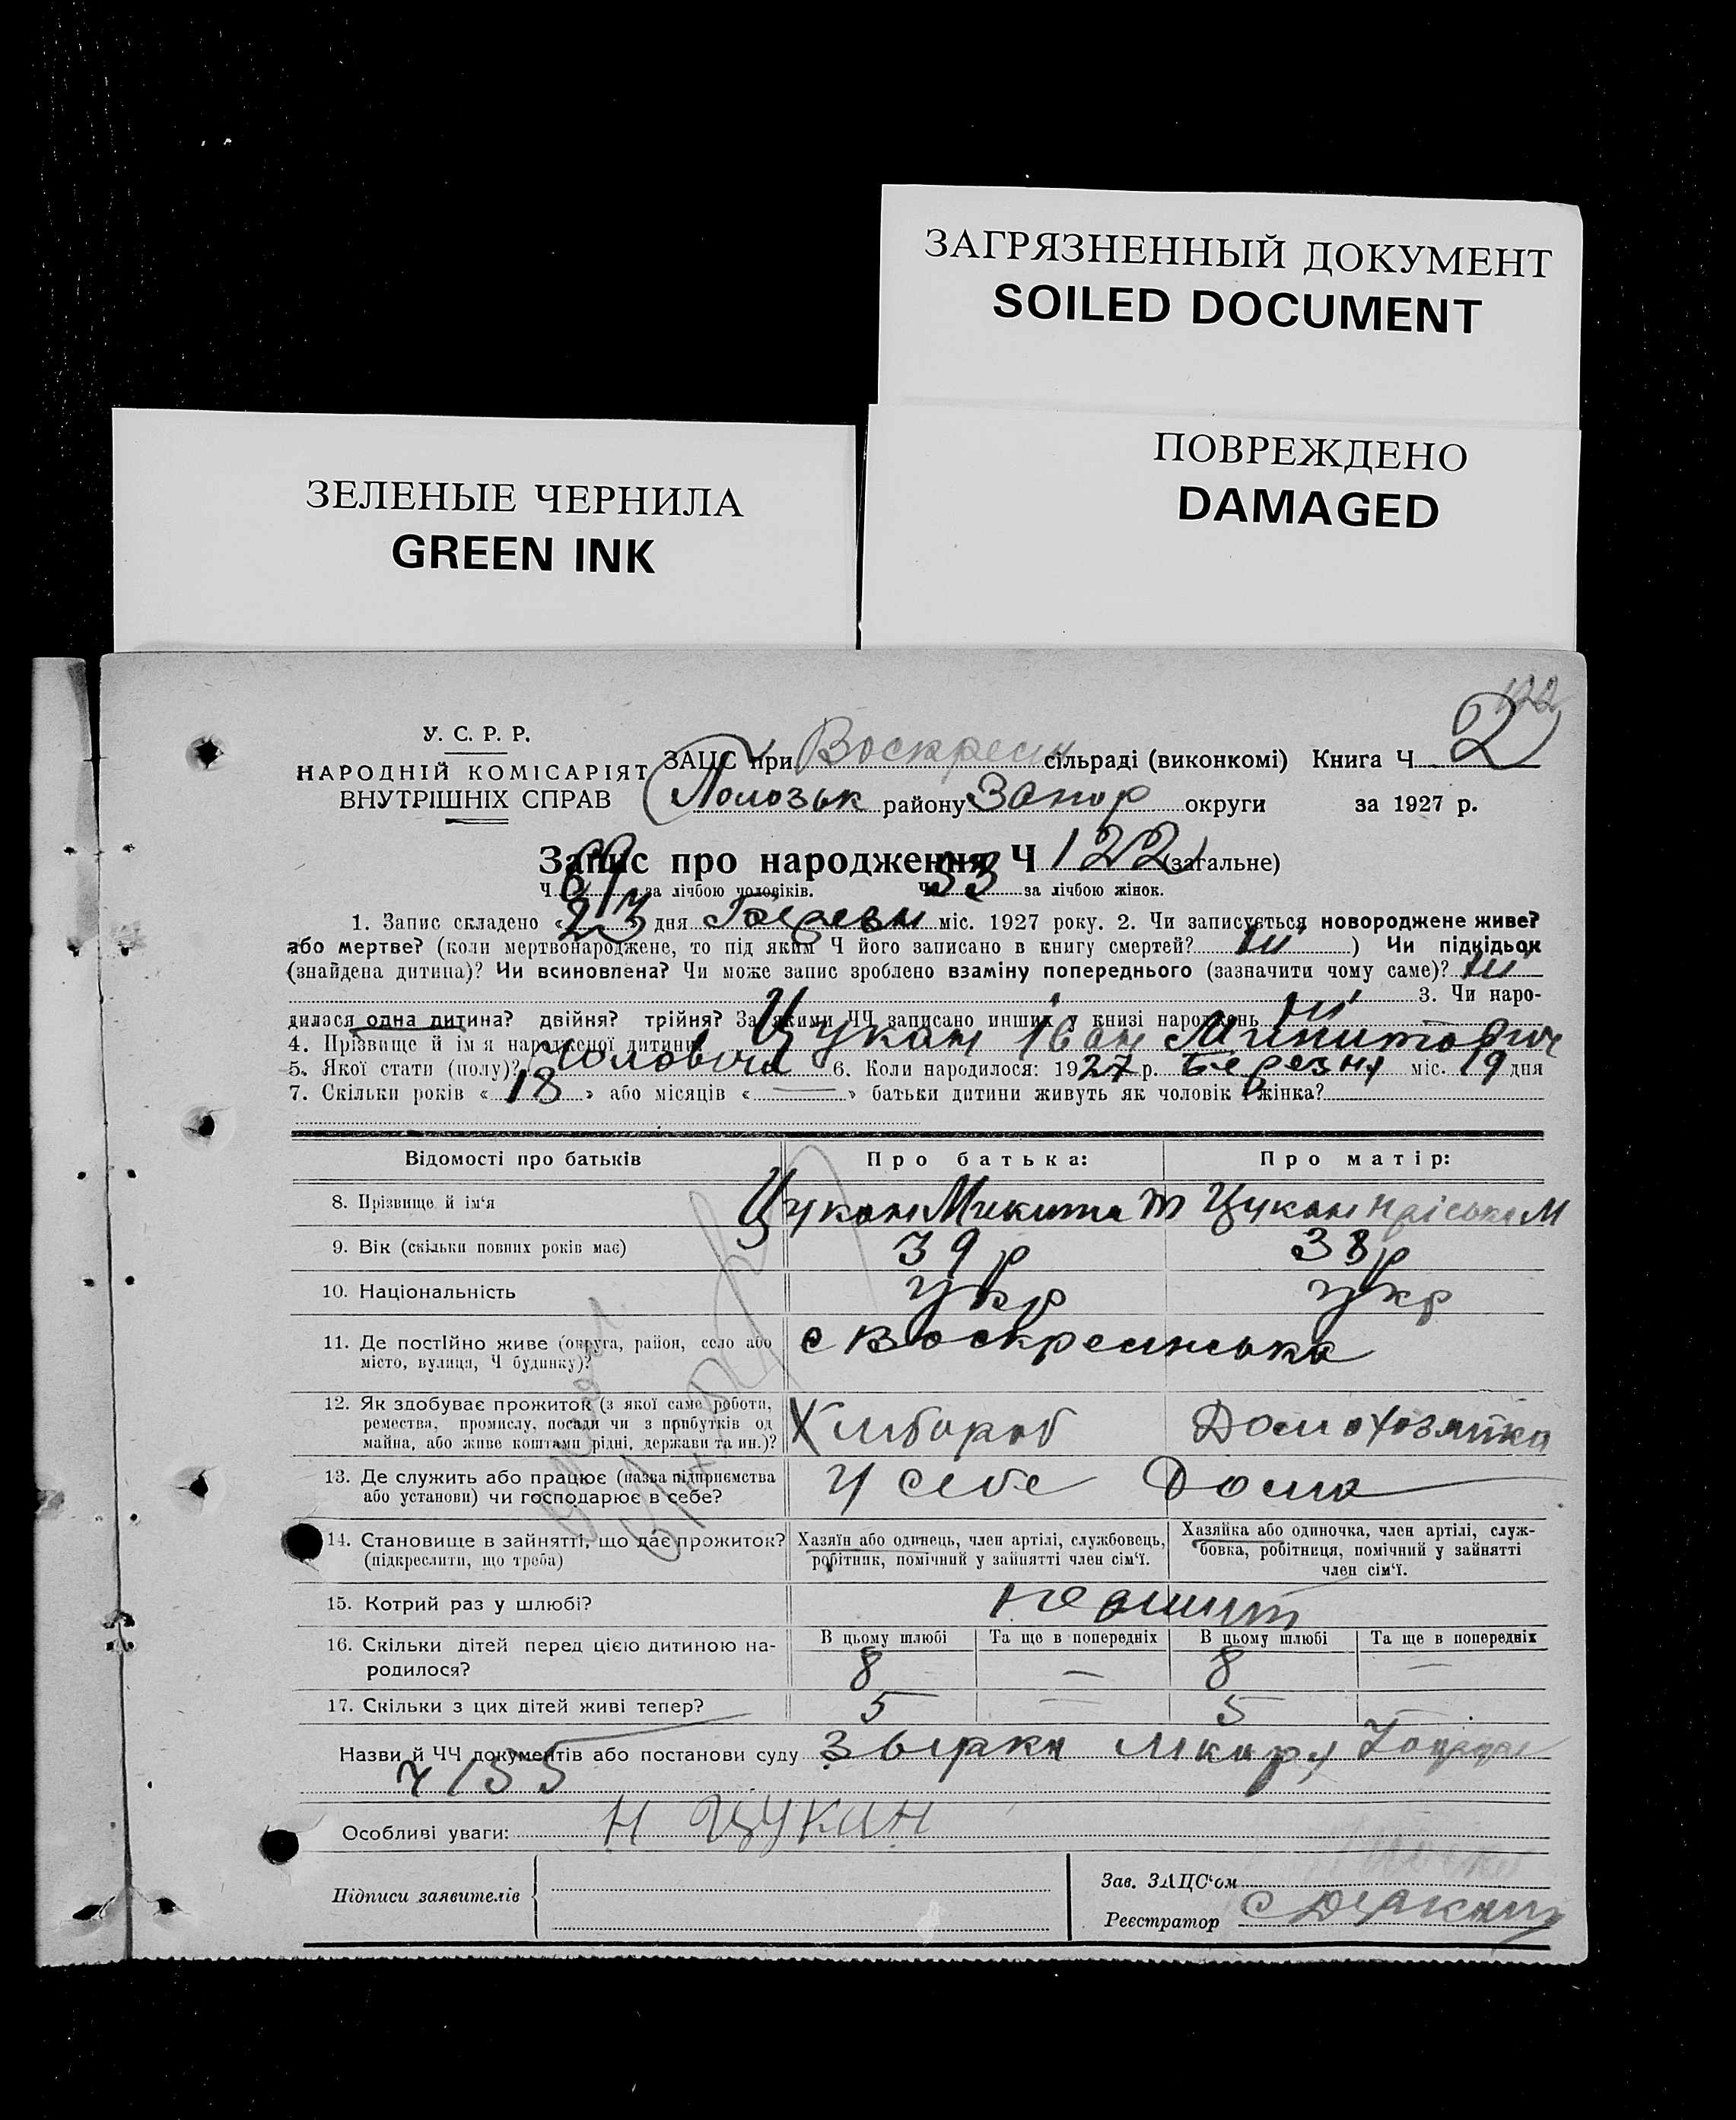 ЗАГРЯЗНЕННЫЙ ДОКУМЕНТ
SOILED DOCUMENT
ПОВРЕЖДЕНО
DAMAGED
ЗЕЛЕНЫЕ ЧЕРНИЛА
GREEN INK
122
У. С. Р. Р.
НАРОДНІЙ КОМІСАРІЯТ
ВНУТРІШНІХ СПРАВ
ЗАЦС при Воскресен сільраді (виконкомі) Книга Ч 2
Пологзьк району Запор округи за 1927 р.
Запис про народження Ч 122 (загальне)
Ч 69 за лічбою чоловіків. Ч 53 за лічбою жінок.
1. Запис складено «23» дня Березня міс. 1927 року. 2. Чи записується новороджене живе?
або мертве? (коли мертвонароджене, то під яким Ч його записано в книгу смертей? ні ) Чи підкідьок
(знайдена дитина)? Чи всиновлена? Чи може запис зроблено взаміну попереднього (зазначити чому саме)? ні
3. Чи наро-
дилася одна дитина? двійня? трійня? За якими ЧЧ записано инших у книзі народжень ні
4. Прізвище й ім'я народженої дитини Цукан Іван Микитович
5. Якої стати (полу)? чоловічої 6. Коли народилося: 1927 р. Березня міс. 19 дня
7. Скільки років «18» або місяців « — » батьки дитини живуть як чоловік і жінка?
Відомості про батьків Про батька: Про матір:
8. Прізвище й ім'я Цукан Микита Т Цукан Пріська М
9. Вік (скільки повних років має) 39 р 38 р
10. Національність Укр Укр
11. Де постійно живе (округа, район, село або
місто, вулиця, Ч будинку)? с Воскресинська
12. Як здобуває прожиток (з якої саме роботи,
ремества, промислу, посади чи з прибутків од
майна, або живе коштами рідні, держави та ин.)? Хлібороб Домохозяйка
13. Де служить або працює (назва підприємства
або установи) чи господарює в себе? У себе Дома
14. Становище в зайнятті, що дає прожиток?
(підкреслити, що треба)
Хазяїн або одинець, член артілі, службовець,
робітник, помічний у зайнятті член сім'ї.
Хазяйка або одиночка, член артілі, служ-
бовка, робітниця, помічний у зайнятті
член сім'ї.
15. Котрий раз у шлюбі?
16. Скільки дітей перед цією дитиною на-
родилося?
В цьому шлюбі Та ще в попередніх В цьому шлюбі Та ще в попередніх
8 — 8 —
17. Скільки з цих дітей живі тепер? 5 — 5 —
Назви й ЧЧ документів або постанови суду
ч 155
Особливі уваги: Н Цукан
Підписи заявителів
Зав. ЗАЦС'ом
Реєстратор